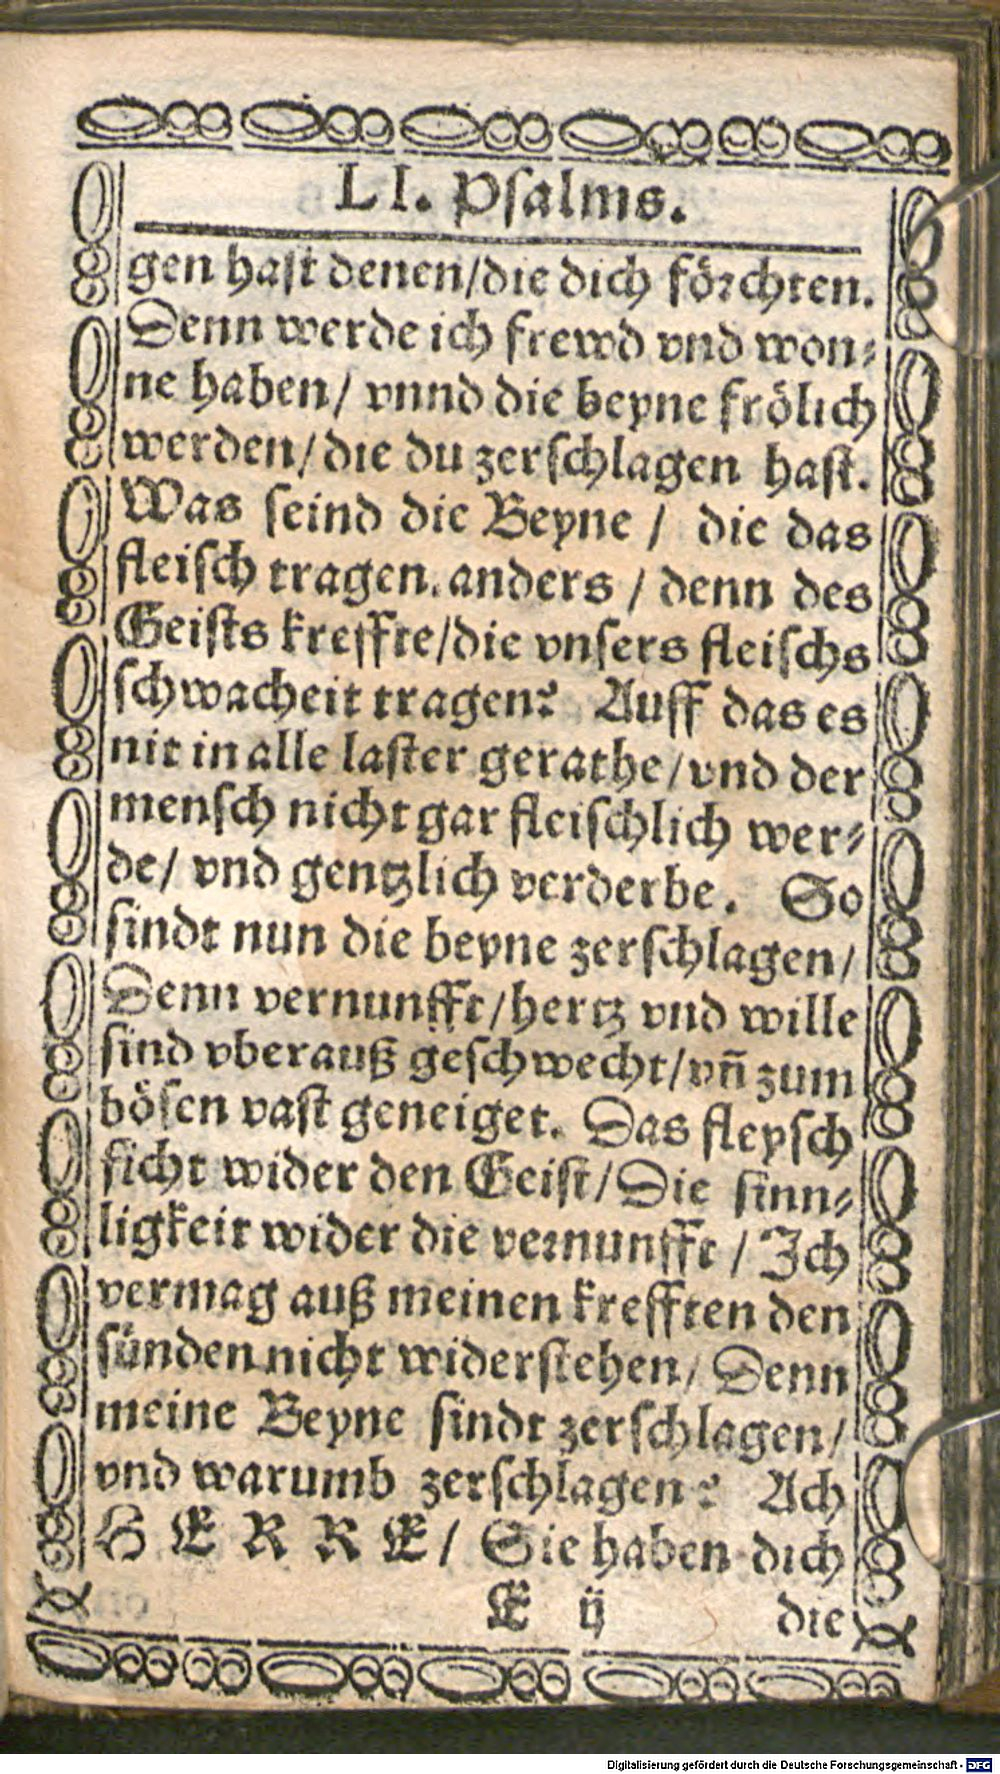 LI. Psalms.
gen hast denen/die dich förchten.
Denn werde ich frewd vnd won⸗
ne haben/ vnnd die beyne frölich
werden/die du zerschlagen hast.
Was seind die Beyne / die das
fleisch tragen anders / denn des
Geists kreffte/die vnsers fleischs
schwacheit tragen? Auff das es
nit in alle laster gerathe/vnd der
mensch nicht gar fleischlich wer⸗
de/ vnd gentzlich verderbe. So
sindt nun die beyne zerschlagen/
Denn vernunfft/hertz vnd wille
sind vberauß geschwecht/vñ zum
bösen vast geneiget. Das fleysch
ficht wider den Geist/Die sinn⸗
ligkeit wider die vernunfft / Ich
vermag auß meinen krefften den
sünden nicht widerstehen/ Denn
meine Beyne sindt zerschlagen/
vnd warumb zerschlagen? Ach
HERRE/ Sie haben dich
E ij die
Digitalisierung gefördert durch die Deutsche Forschungsgemeinschaft - DFG